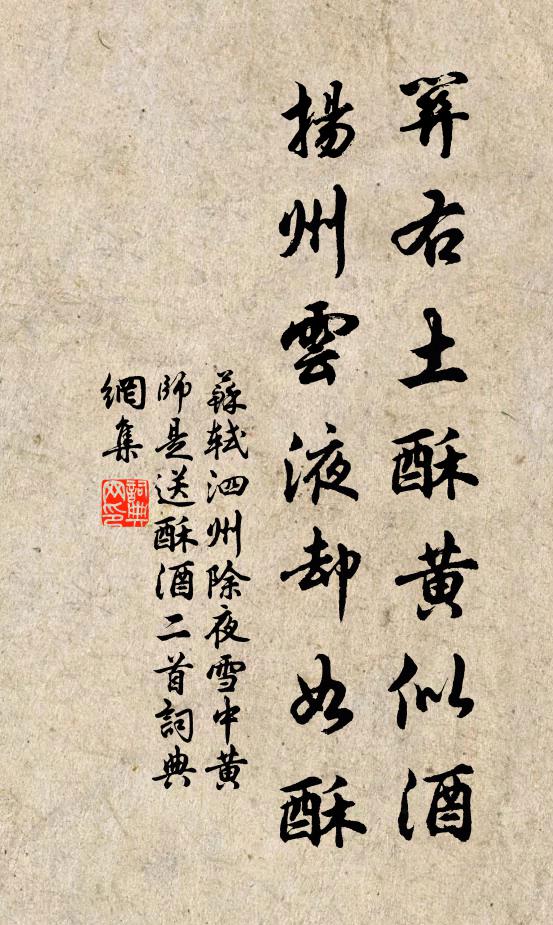 關右土酥黄似酒
揚州雲液却如酥
蘇軾泗州除夜雪中黄
師是送酥酒二首詞典
網集
詞典
网印